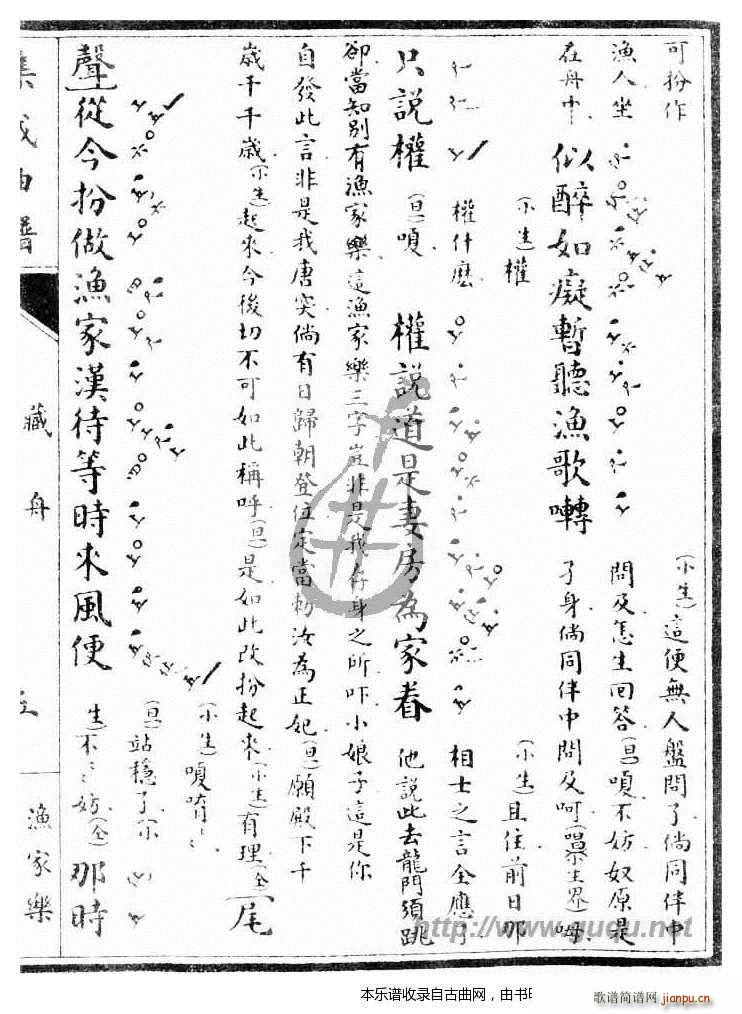 可扮作
漁人坐
在舟中
似醉如癡暫聽漁歌囀
(小生)這便無人盤問了倘同伴中
問及怎生回答(旦)嗄不妨奴原是
孑身倘同伴中問及呵
(小生)權
權什麼
只說權
(旦)嗄
權說道是妻房為家眷
(小生)且住前日那
相士之言全應了
他說此去龍門須跳
卻當知別有漁家樂這漁家樂三字豈非是我存身之所吓小娘子這是你
自發此言非是我唐突倘有日歸朝登位定當勅汝為正妃(旦)願殿下千
歲千千歲(小生)起來今後切不可如此稱呼(旦)是如此改扮起來(小生)有理(仝)尾
聲
從今扮做漁家漢待等時來風便
(小生)嗄唷〻
(旦)站穩了(小
生)不〻妨(仝)
那時
集成曲譜
藏舟
漁家樂
http://www.ququ.net
本乐谱收录自古曲网，由书
歌谱简谱网
jianpu.cn